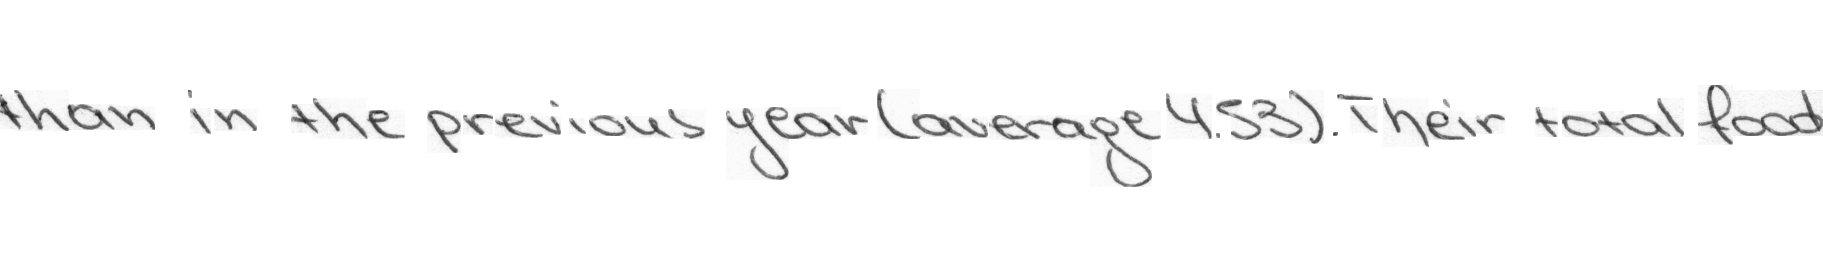 than in the previous year (average 4.53). Their total food